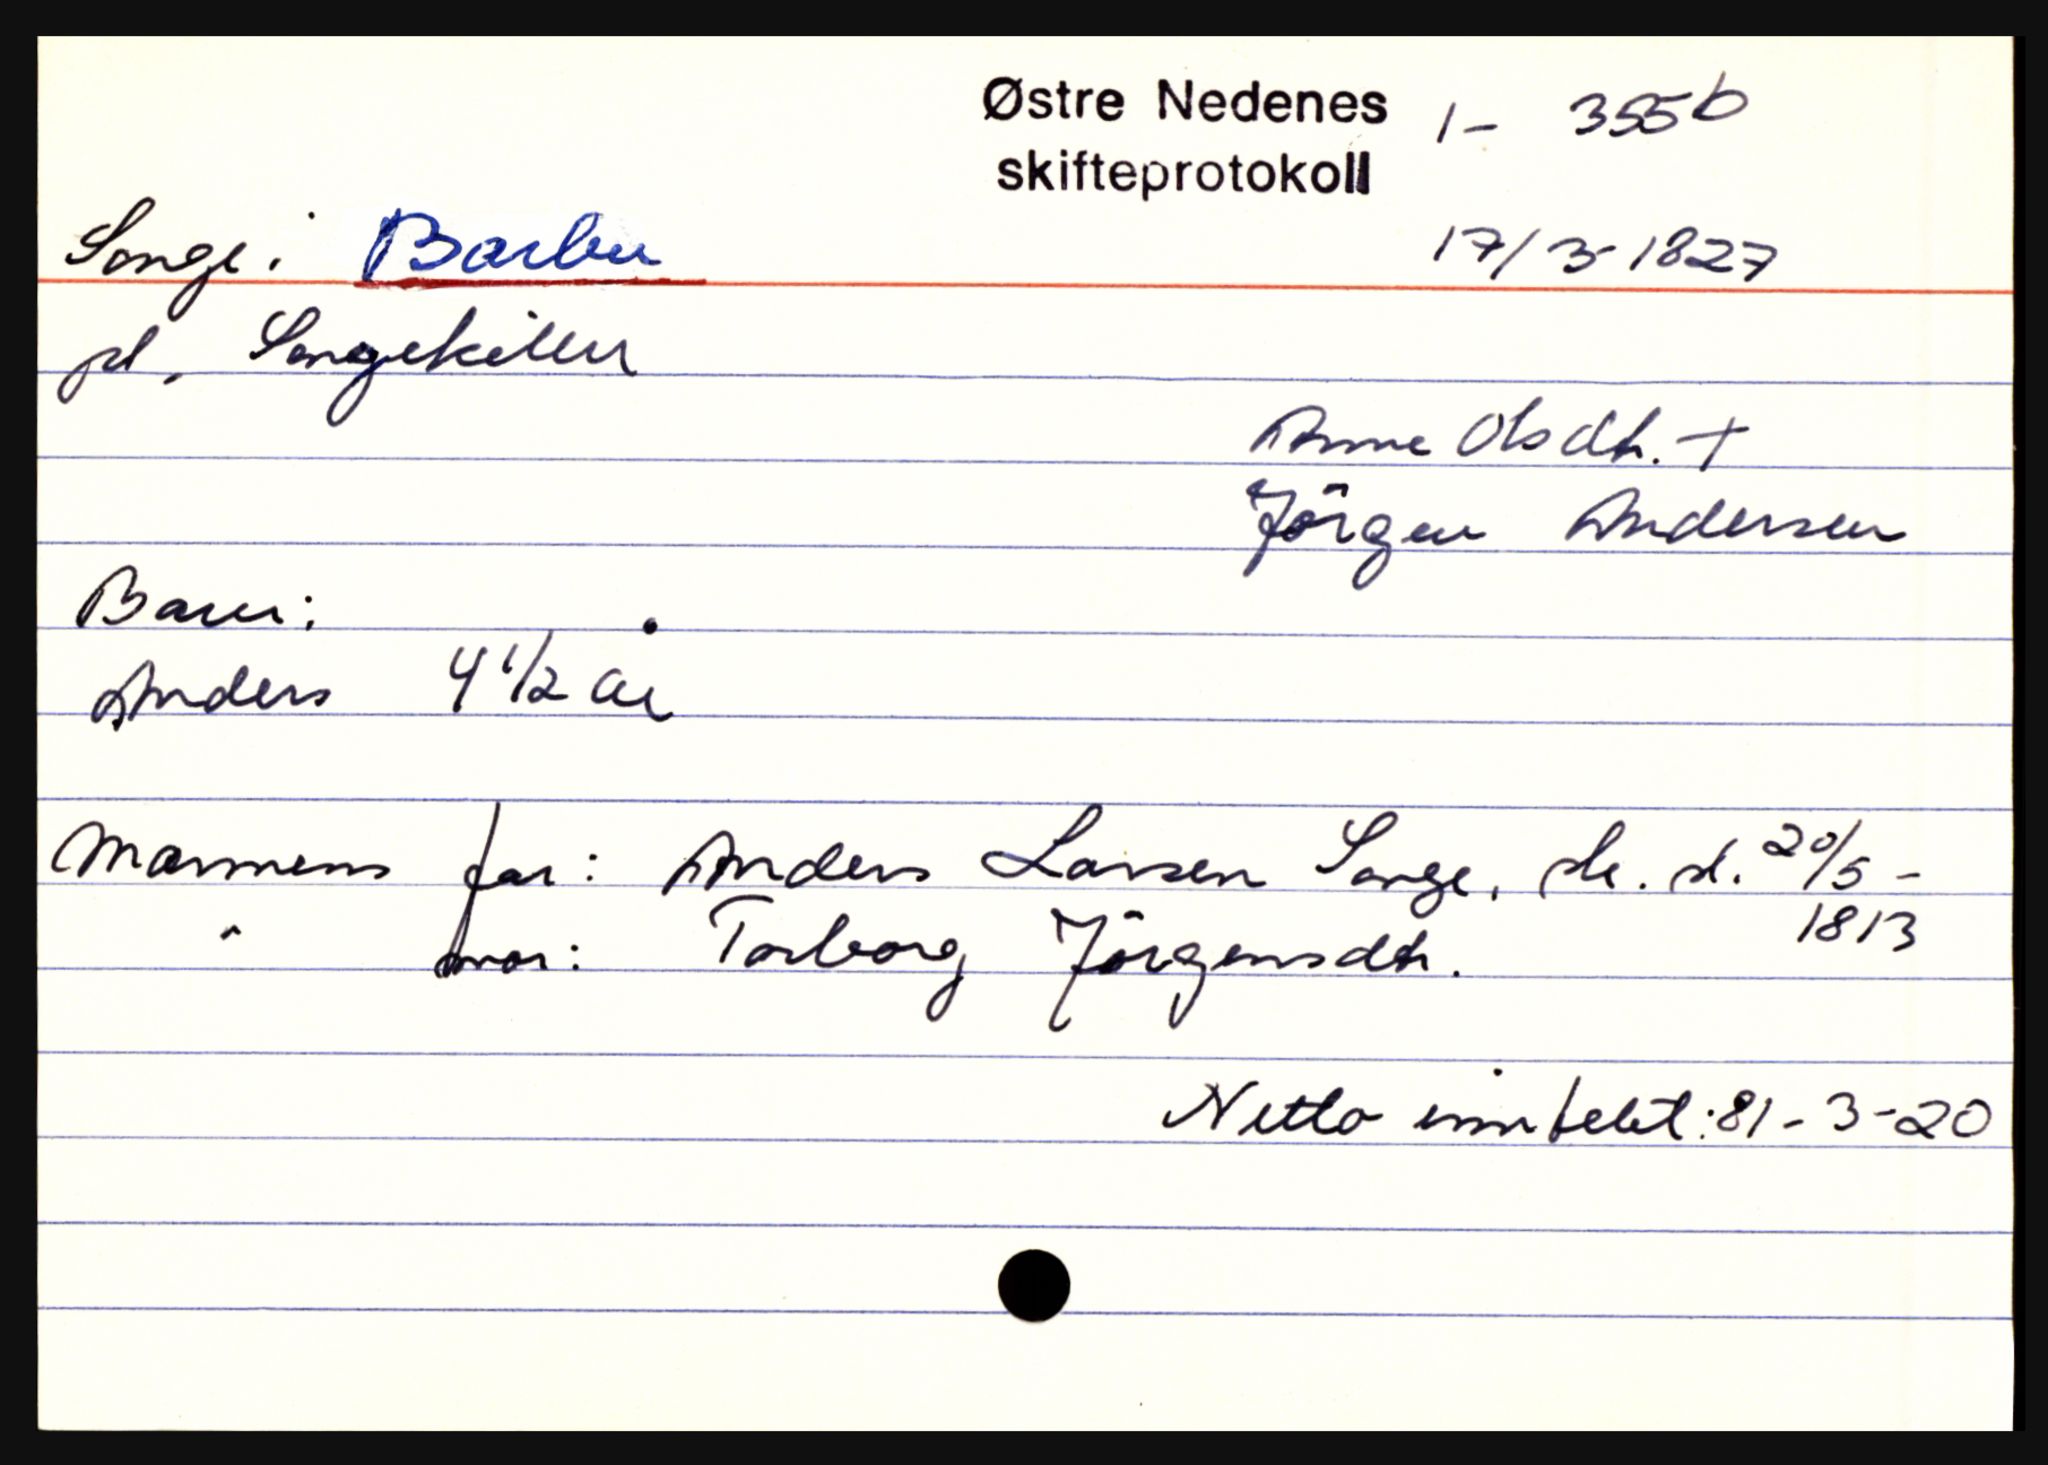 Østre Nedenes 1- 355b
skifteprotokoll
Songe i Barbu 17/3-1827
pl. Songekilen
Anne Olsdtr. +
Jörgen Andersen
Barn:
Anders 4 1/2 år
Mannens far: Anders Larsen Songe, sk. d. 20/5-
1813
" mor: Torborg Jörgensdtr.
Netto innbetalt: 81-3-20